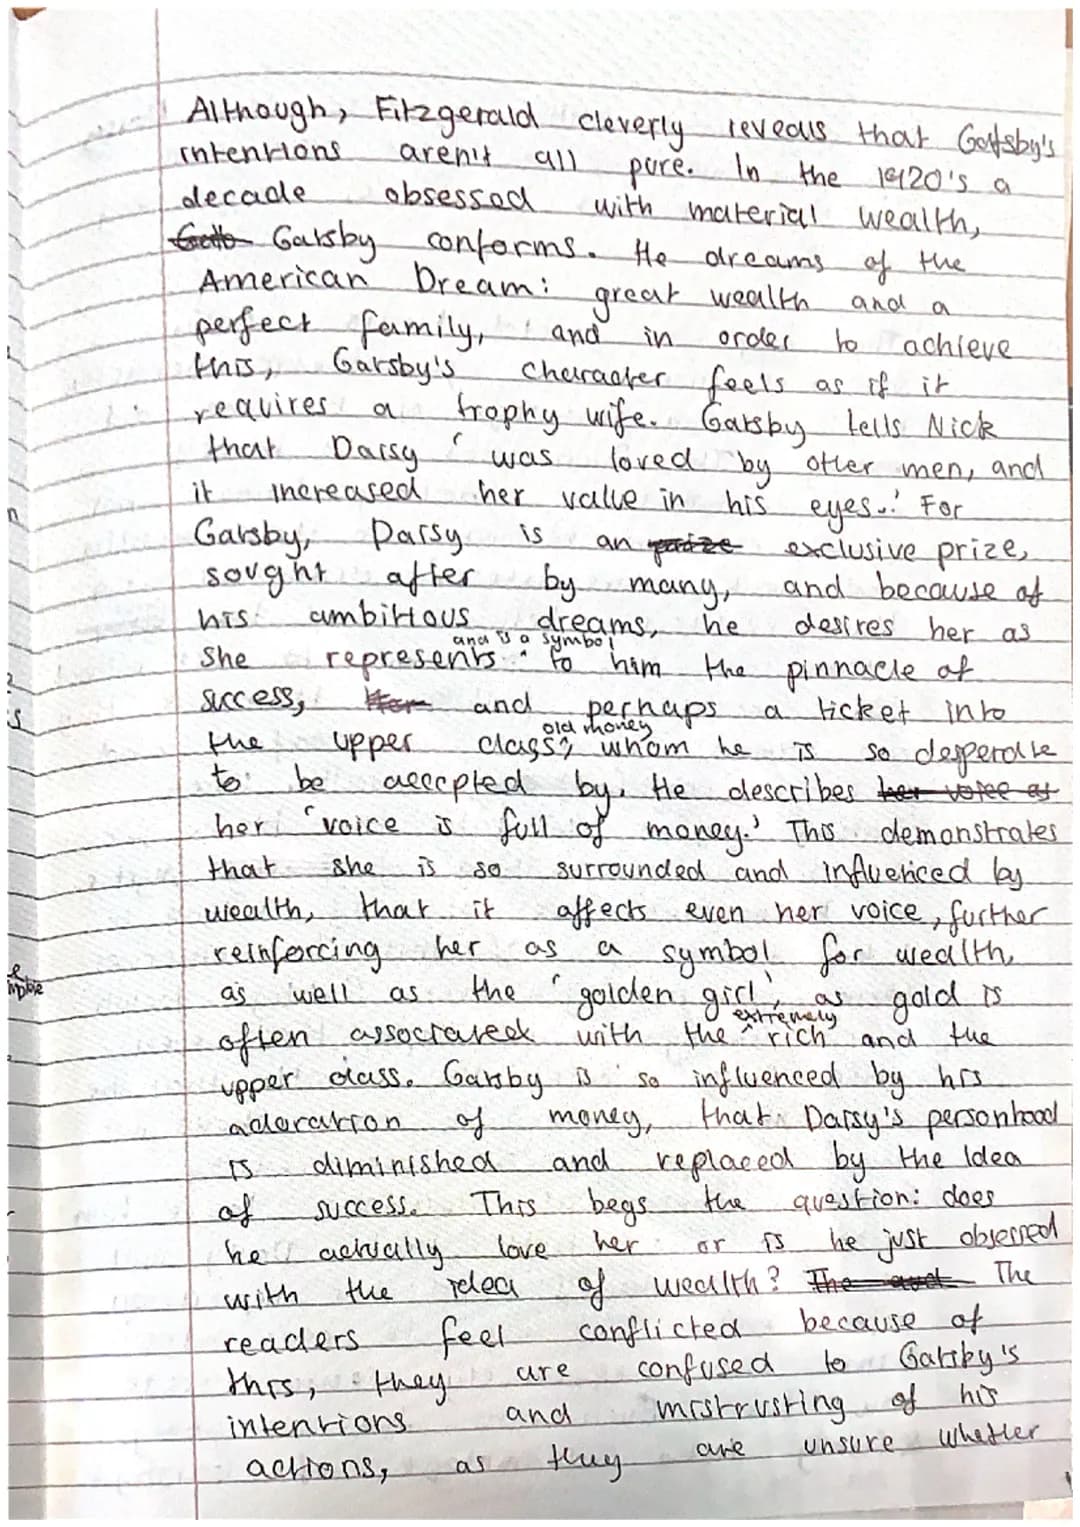 Although, Fitzgerald cleverly reveals that Gatsby's
intentions aren't all pure. In the 1920's a
decade obsessed with material wealth,
Gatsby conforms. He dreams of the
American Dream: great wealth and a
perfect family, and in order to achieve
this, Gatsby's character feels as if it
requires a trophy wife. Gatsby tells Nick
that Daisy 'was loved by other men, and
it increased her value in his eyes..' For
Gatsby, Daisy is an prize exclusive prize,
sought after by many, and because of
his ambitious dreams, he desires her as
and is a symbol
she represents ^ to him the pinnacle of
success, Her and perhaps a ticket into
old money
the upper class^, whom he is so desperate
to be accepted by. He describes her voice as
her 'voice is full of money.' This demonstrates
that she is so surrounded and influenced by
wealth, that it affects even her voice, further
reinforcing her as a symbol for wealth,
as well as the 'golden girl', as gold is
extremely
often associated with the ^ rich and the
upper class. Gatsby is so influenced by his
adoration of money, that Daisy's personhood
is diminished and replaced by the idea
of success. This begs the question: does
he actually love her or is he just obsessed
with the idea of wealth? The
readers feel conflicted because of
this, they are confused to Gatsby's
intentions and mistrusting of his
actions, as they are unsure whether